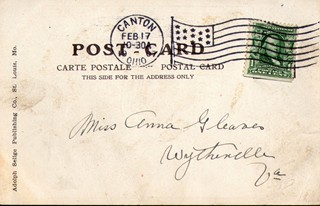 CANTON
FEB 17
10-30A
OHIO
POST CARD
CARTE POSTALE POSTAL CARD
THIS SIDE FOR THE ADDRESS ONLY
Adolph Selige Publishing Co., St. Louis, Mo.
Miss Anna Gleaves
Wytheville
Va